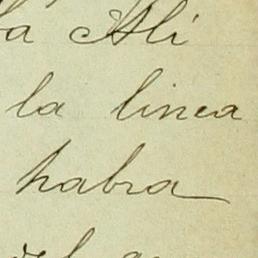 Ali
la linea
habra